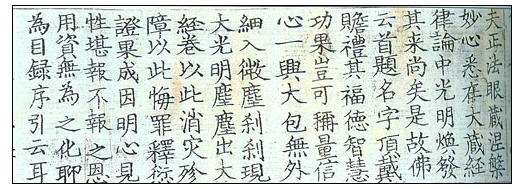 夫正法眼蔵涅槃
妙心悉在大蔵經
律論中光明煥發
其來尚矣是故佛
云首題名字頂戴
瞻禮其福德智慧
功果豈可稱量信
心一興大包無外
細入微塵刹刹現
大光明塵塵出大
經卷以此消灾殄
障以此悔罪釋𠎝
證果成因明心見
性堪報不報之恩
用資無為之化聊
為目録序引云耳